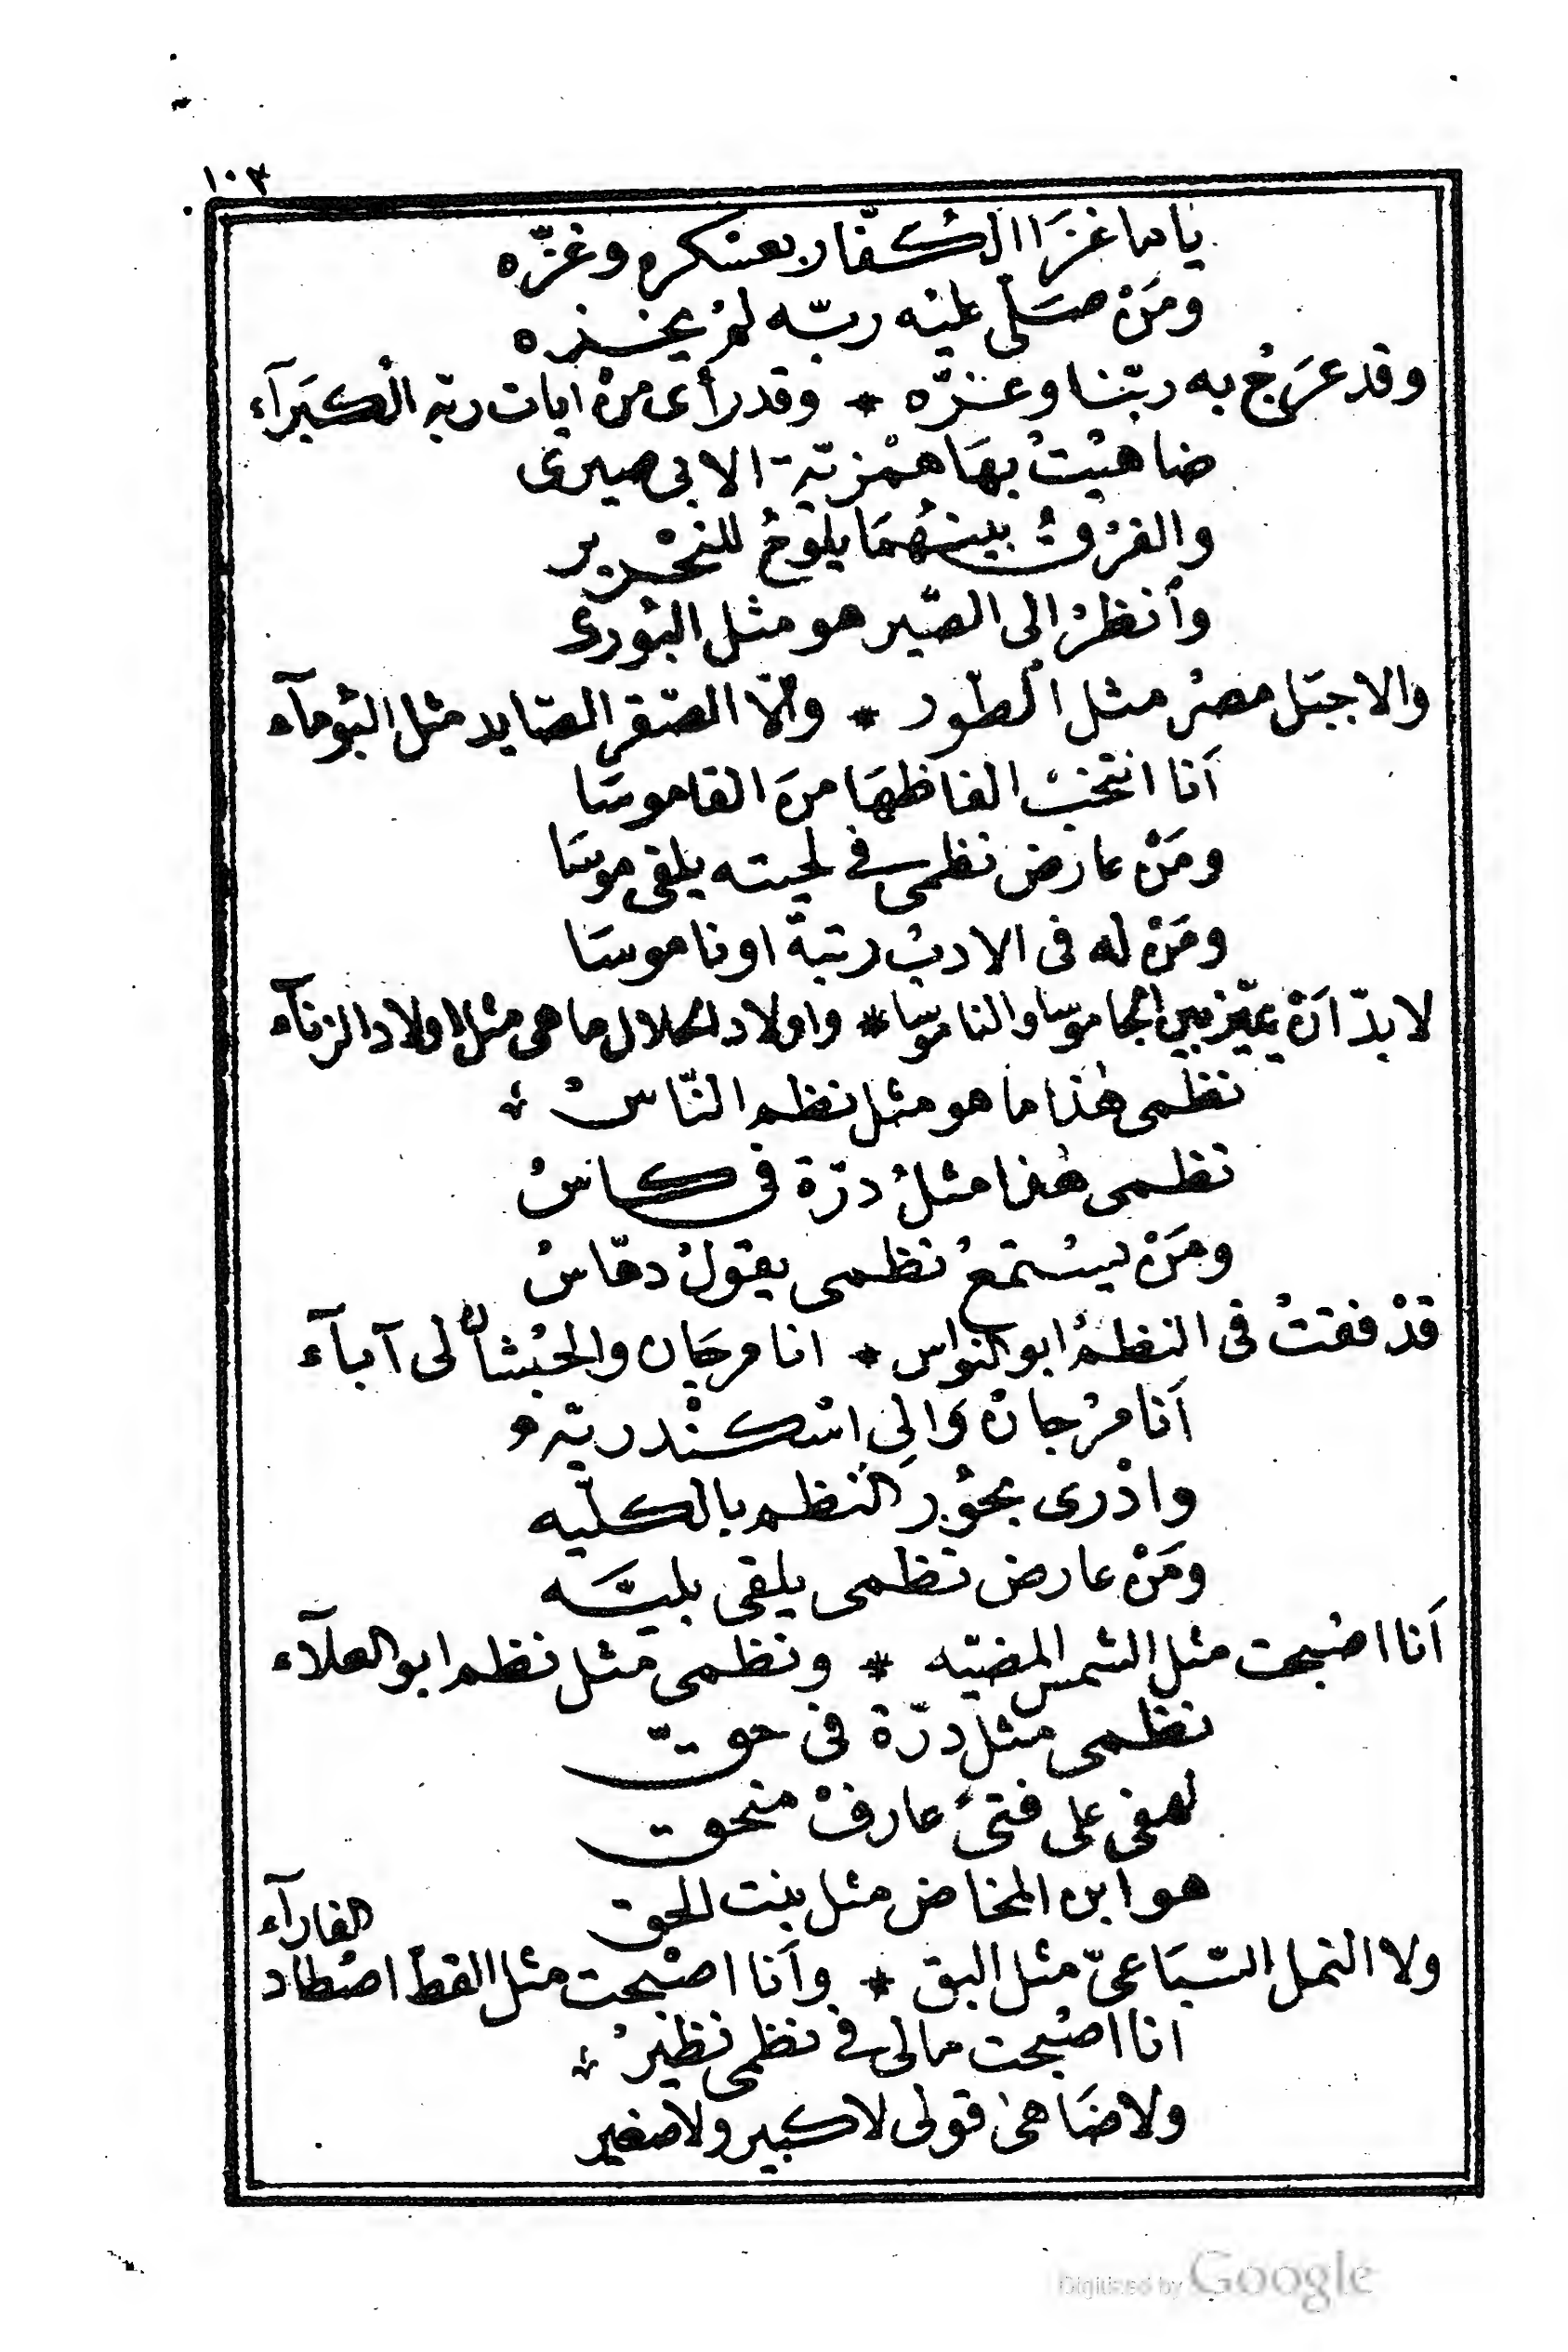 ١٠٣
ياما غزَا الكُفّار بعسْكره وغزّه
ومَنْ صَلّى عليْه ربّه لمْ يخزه
وقد عرَجْ به ربّنا وعزّه * وقد رأى منْ ايات ربّه الْكبَرآء
ضاهيْتْ بهَا همْزيّة الابى صيرى
والفرْقْ بينهُمَا يلوحْ للنحْرير
وٱنظرْ الى الصّير هو مثل البُورى
والا جبَل مصْر مثل ٱلطّور * وٱلّا الصّقر الصّايد مثل البُومآء
أنا انتخبْ الفاظهَا منَ القاموسَا
ومَنْ عارض نظمى فى لحيته يلقى موسَا
ومَنْ له فى الادبْ رتبة او ناموسَا
لا بدّ انْ يميّز بين الجاموسَا والناموسَا * واولاد الحلال ما هى مثل اولاد الزنآء
نظمى هٰذا ما هو مثل نظم النّاسْ
نظمى هٰذا مثلْ درّة فى كاسْ
ومَنْ يسْتمعْ نظمى يقولْ دهّاسْ
قدْ فقتْ فى النظمْ ابو النواس * انا مرجَان والحبْشان لى آبآء
أنا مرْجانْ وَالِى اسْكنْدريّه
وادْرى بحوْر النظم بالكليّه
ومَنْ عارض نظمى يلقى بليّه
أنا اصْبحت مثل الشمس المضيّه * ونظمى مثل نظم ابو العلآء
نظمى مثل درّة فى حقّ
لهفى على فتىً عارفْ منحق
هو ابن المخاض مثل بنت الحق
ولا النمل السّبَاعىّ مثل البق * وأنا اصْبحت مثل القطّ اصْطاد الفارآء
انا اصْبحت مالى فى نظمى نظيرْ
ولا ضَاهىٰ قولى لا كبير ولا صغير
Digitized by Google